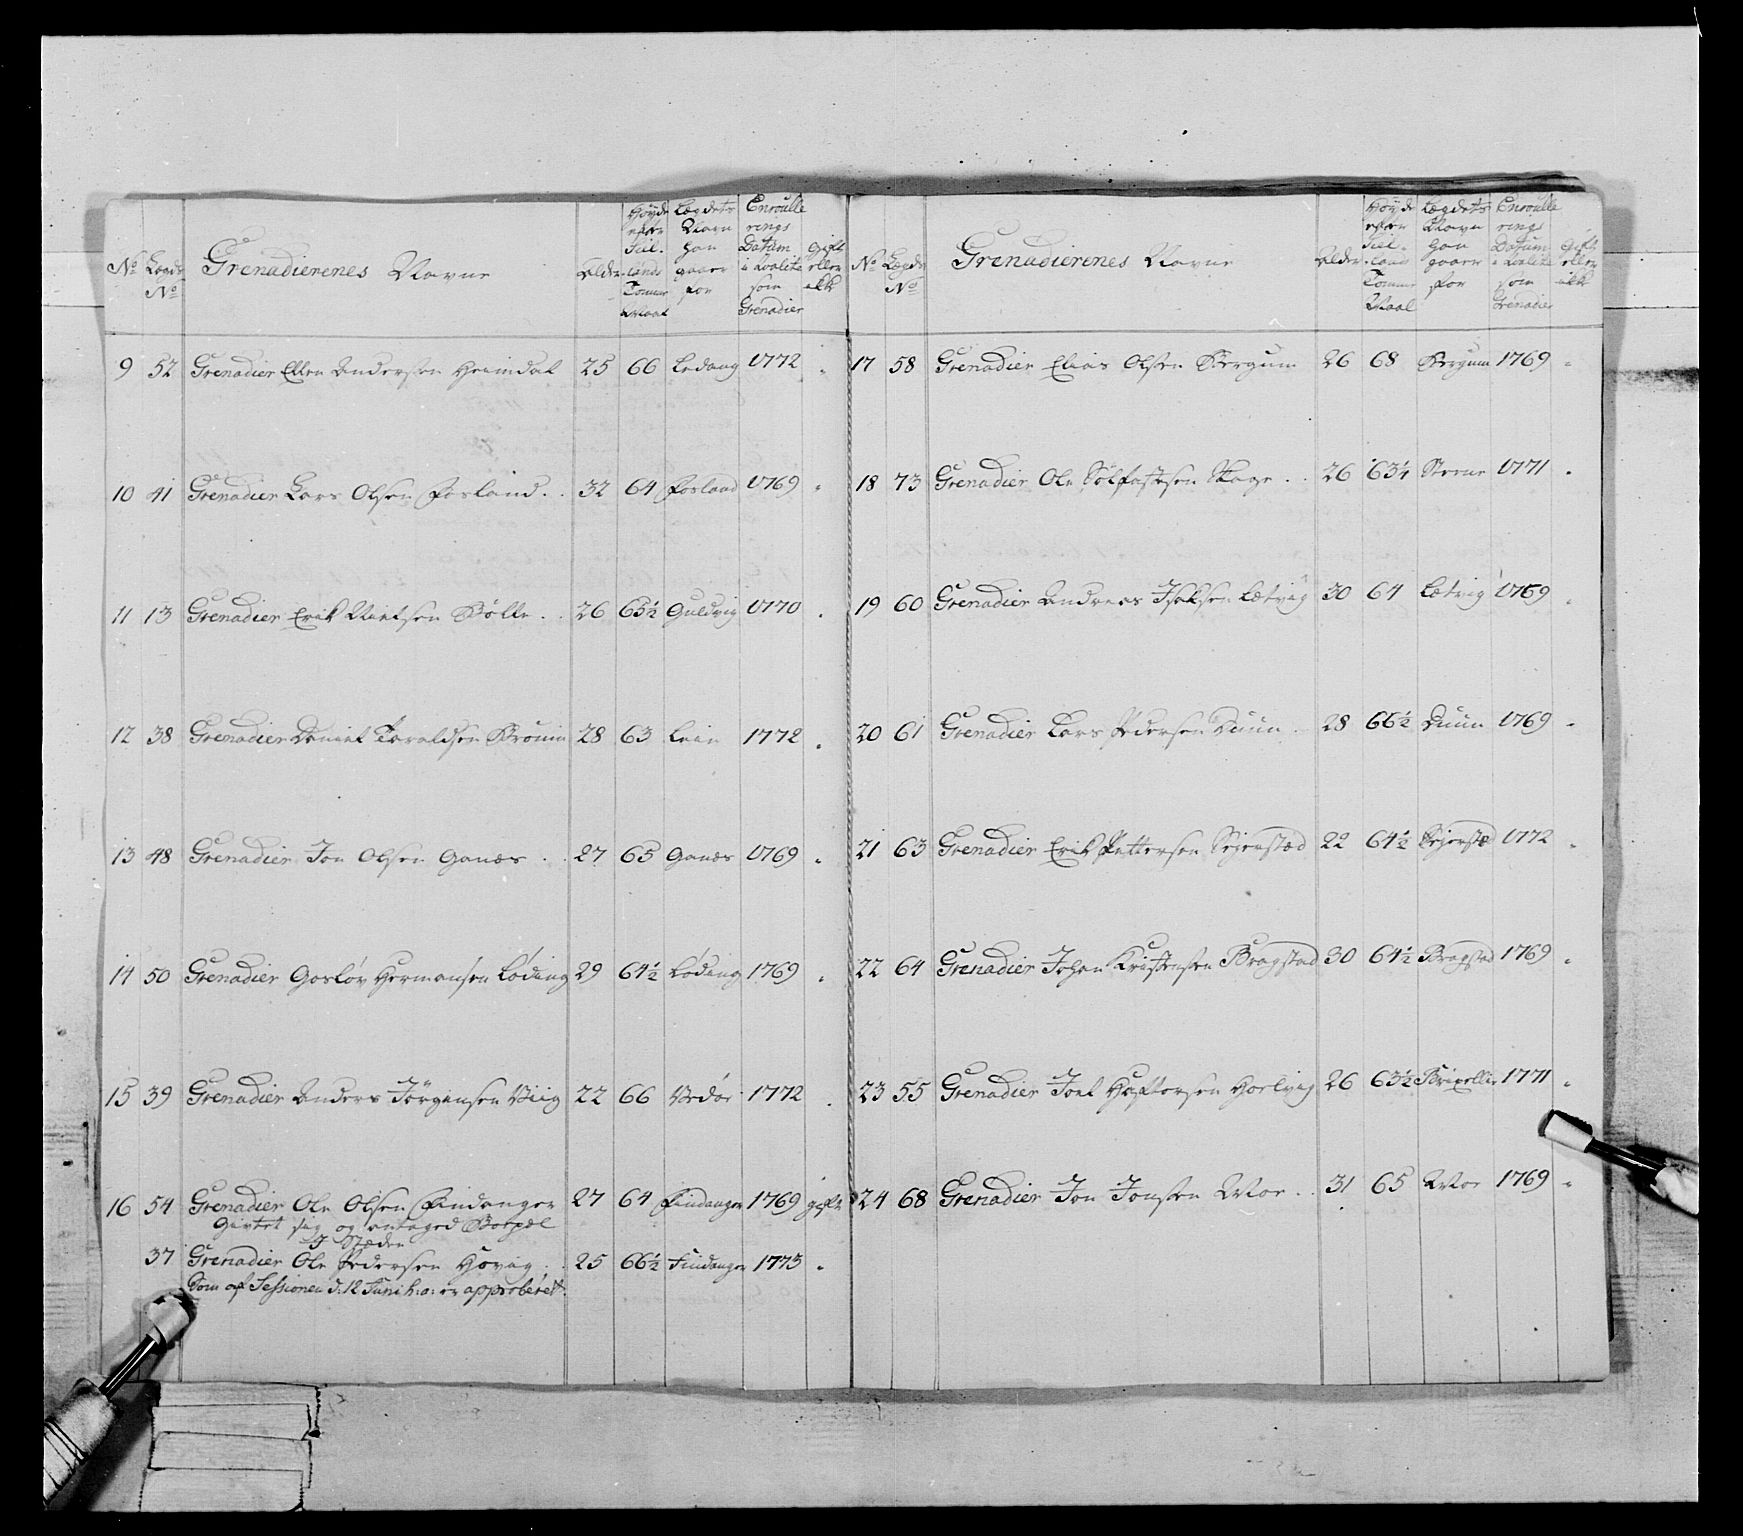 No Lægds No Grenadierenes Navne Alder Høyde efter Siel-lands Tomme Maal Lægdets Navn han gaaer for Enroullerings Datum i Qvalite som Grenadier Gift eller ekke
9 52 Grenadier Ellen Andersen Heimdal 25 66 Ledang 1772 "
10 41 Grenadier Lars Olsen Fosland . . 32 64 Fosland 1769 "
11 13 Grenadier Erik Nielsen Bölle . . 26 65½ Guldvig 1770 "
12 38 Grenadier Daniel Taraldsen Brouin 28 63 Lein 1772 "
13 48 Grenadier Jon Olsen Ganæs . . 27 65 Ganæs 1769 "
14 50 Grenadier Gosløv Hermansen Løding 29 64½ Løding 1769 "
15 39 Grenadier Anders Jörgensen Viig 22 66 Vedøe 1772 "
16 54 Grenadier Ole Olsen Findanger 27 64 Findanger 1769 gift
Givtet sig og antaged
I Stæden
37 Grenadier Ole Pedersen Høvig . . 25 66½ Findanger 1773 "
Som af Sessionen d: 12 Juni h: a: er approberet.
No Lægds No Grenadierenes Navne Alder Høyde efter Siel-lands Tomme Maal Lægdets Navn han gaaer for Enroullerings Datum i Qvalite som Grenadier Gift eller ekke
17 58 Grenadier Elias Olsen Bergum 26 68 Bergum 1769 "
18 73 Grenadier Ole Sölfastsen Skage . . 26 63¼ Steene 1771 "
19 60 Grenadier Andreas Isaksen Lætvig 30 64 Lætvig 1769 "
20 61 Grenadier Lars Pedersen Duun . 28 66½ Duun 1769 "
21 63 Grenadier Erik Pettersen Sejerstæd 22 64½ Sejerstæd 1772 "
22 64 Grenadier Johan Kristensen Bragstad 30 64½ Bragstad 1769 "
23 55 Grenadier Joel Haftorsen Hoelvig 26 63½ 1771 "
24 68 Grenadier Jon Jonsen Moe . . 31 65 Moe 1769 "